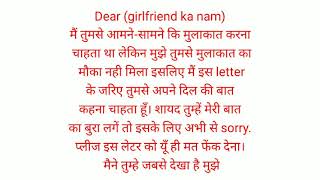 Dear (girlfriend ka nam)
मैं तुमसे आमने-सामने कि मुलाकात करना
चाहता था लेकिन मुझे तुमसे मुलाकात का
मौका नही मिला इसलिए मैं इस letter
के जरिए तुमसे अपने दिल की बात
कहना चाहता हूँ। शायद तुम्हें मेरी बात
का बुरा लगें तो इसके लिए अभी से sorry.
प्लीज इस लेटर को यूँ ही मत फेंक देना।
मैने तुम्हे जबसे देखा है मुझे